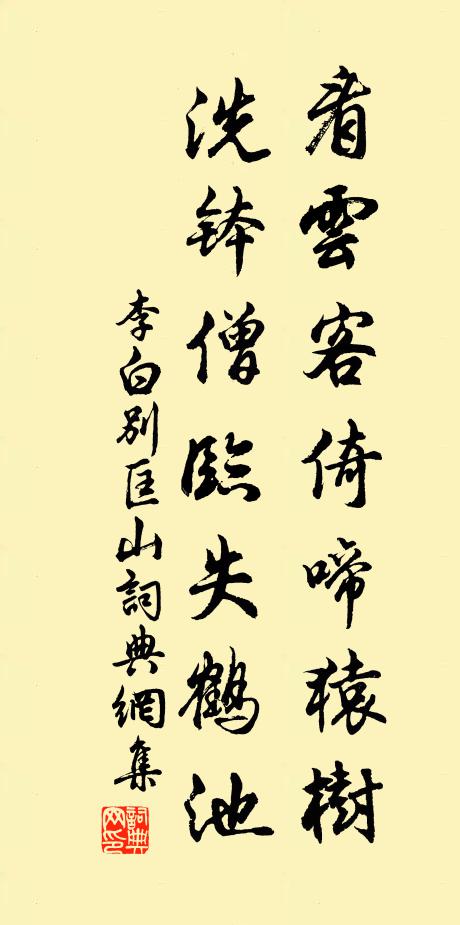 看雲客倚啼猿樹
洗鉢僧臨失鶴池
李白別匡山詞典網集
詞典网印